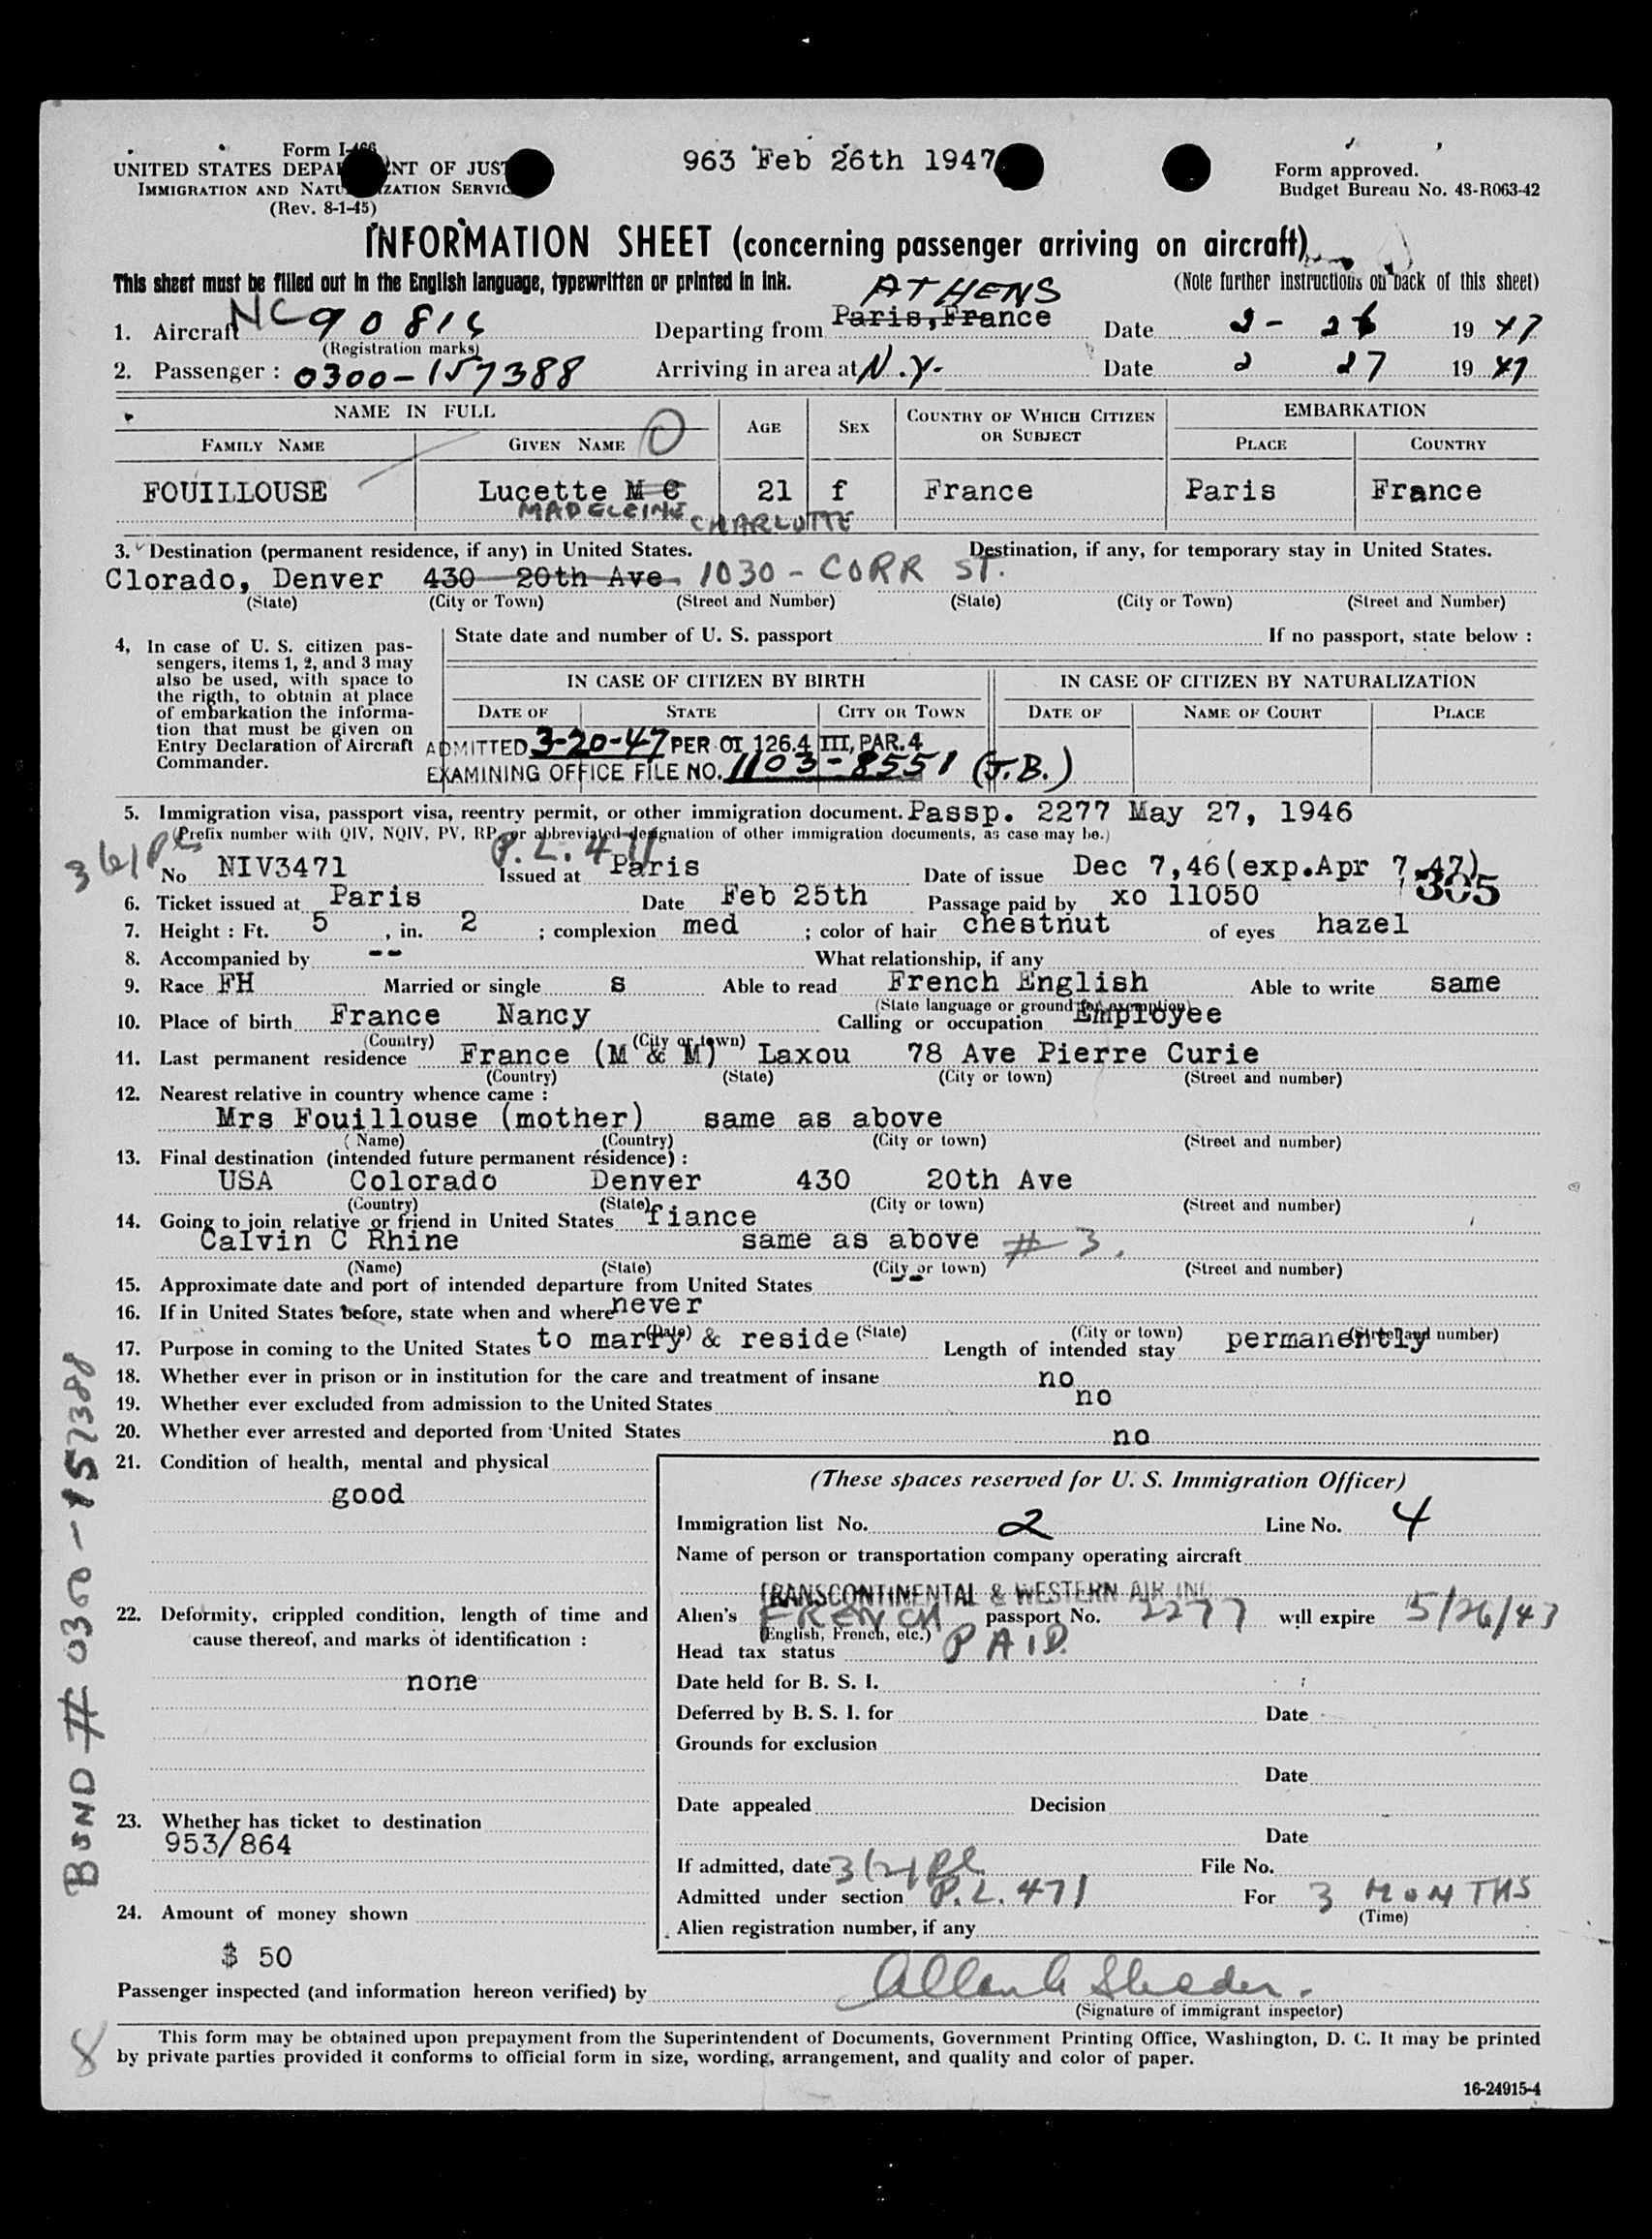 Form I-466
963 Feb 26th 1947
UNITED STATES DEPA NT OF JUST
Form approved.
IMMIGRATION AND NATU IZATION SERVIC
Budget Bureau No. 43-R063-42
(Rev. 8-1-45)
INFORMATION SHEET (concerning passenger arriving on aircraft)
This sheet must be filled out in the English language, typewritten or printed in ink.
(Note further instructions on back of this sheet)
ATHENS
1. Aircraft NC 90814 Departing from Paris, France Date 2-26 19 47
(Registration marks)
2. Passenger : 0300-157388 Arriving in area at N.Y. Date 2 27 19 47
NAME IN FULL AGE SEX COUNTRY OF WHICH CITIZEN OR SUBJECT EMBARKATION
FAMILY NAME GIVEN NAME PLACE COUNTRY
FOUILLOUSE Lucette M C 21 f France Paris France
MADELEINE CHARLOTTE
3. Destination (permanent residence, if any) in United States. Destination, if any, for temporary stay in United States.
Clorado, Denver 430 20th Ave. 1030 - CORR ST.
(State) (City or Town) (Street and Number) (State) (City or Town) (Street and Number)
4, In case of U. S. citizen pas-
sengers, items 1, 2, and 3 may
also be used, with space to
the rigth, to obtain at place
of embarkation the informa-
tion that must be given on
Entry Declaration of Aircraft
Commander.
State date and number of U. S. passport If no passport, state below :
IN CASE OF CITIZEN BY BIRTH IN CASE OF CITIZEN BY NATURALIZATION
DATE OF STATE CITY OR TOWN DATE OF NAME OF COURT PLACE
ADMITTED 3-20-47 PER OI 126.4 III, PAR. 4
EXAMINING OFFICE FILE NO. 1103-8551 (J.B.)
5. Immigration visa, passport visa, reentry permit, or other immigration document. Passp. 2277 May 27, 1946
(Prefix number with QIV, NQIV, PV, RP, or abbreviated designation of other immigration documents, as case may be.)
P.L. 471
No NIV3471 Issued at Paris Date of issue Dec 7,46(exp.Apr 7.47)
305
6. Ticket issued at Paris Date Feb 25th Passage paid by xo 11050
7. Height : Ft. 5 , in. 2 ; complexion med ; color of hair chestnut of eyes hazel
8. Accompanied by -- What relationship, if any
9. Race FH Married or single s Able to read French English Able to write same
(State language or ground for exemption)
10. Place of birth France Nancy Calling or occupation Employee
(Country) (City or town)
11. Last permanent residence France (M & M) Laxou 78 Ave Pierre Curie
(Country) (State) (City or town) (Street and number)
12. Nearest relative in country whence came :
Mrs Fouillouse (mother) same as above
(Name) (Country) (City or town) (Street and number)
13. Final destination (intended future permanent résidence) :
USA Colorado Denver 430 20th Ave
(Country) (State) (City or town) (Street and number)
14. Going to join relative or friend in United States fiance
Calvin C Rhine same as above # 3.
(Name) (State) (City or town) (Street and number)
15. Approximate date and port of intended departure from United States --
16. If in United States before, state when and where never
(Date) (State) (City or town) (Street and number)
17. Purpose in coming to the United States to marry & reside Length of intended stay permanently
18. Whether ever in prison or in institution for the care and treatment of insane no
19. Whether ever excluded from admission to the United States no
20. Whether ever arrested and deported from United States no
21. Condition of health, mental and physical
good
22. Deformity, crippled condition, length of time and
cause thereof, and marks of identification :
none
23. Whether has ticket to destination
953/864
24. Amount of money shown
$ 50
(These spaces reserved for U. S. Immigration Officer)
Immigration list No. 2 Line No. 4
Name of person or transportation company operating aircraft
TRANSCONTINENTAL & WESTERN AIR INC
Alien's FRENCH passport No. 2277 will expire 5/26/47
(English, French, etc.)
Head tax status PAID
Date held for B. S. I.
Deferred by B. S. I. for Date
Grounds for exclusion
Date
Date appealed Decision
Date
If admitted, date File No.
Admitted under section P.L. 471 For 3 MONTHS
(Time)
Alien registration number, if any
Passenger inspected (and information hereon verified) by
(Signature of immigrant inspector)
BOND # 0300-157388
8
This form may be obtained upon prepayment from the Superintendent of Documents, Government Printing Office, Washington, D. C. It may be printed
by private parties provided it conforms to official form in size, wording, arrangement, and quality and color of paper.
16-24915-4